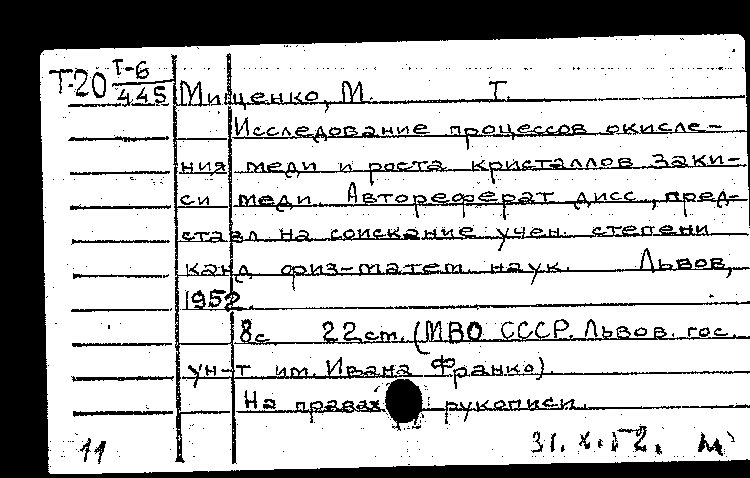 Т-20 Т-6/445 Мищенко, М. Т.
Исследование процессов окисле-
ния меди и роста кристаллов заки-
си меди. Автореферат дисс., пред-
ставл на соискание учен. степени
канд физ-матем. наук. Львов,
1952.
8с 22 см. (МВО СССР. Львов. гос.
ун-т им. Ивана Франко).
На правах рукописи.
11 31.X.52.